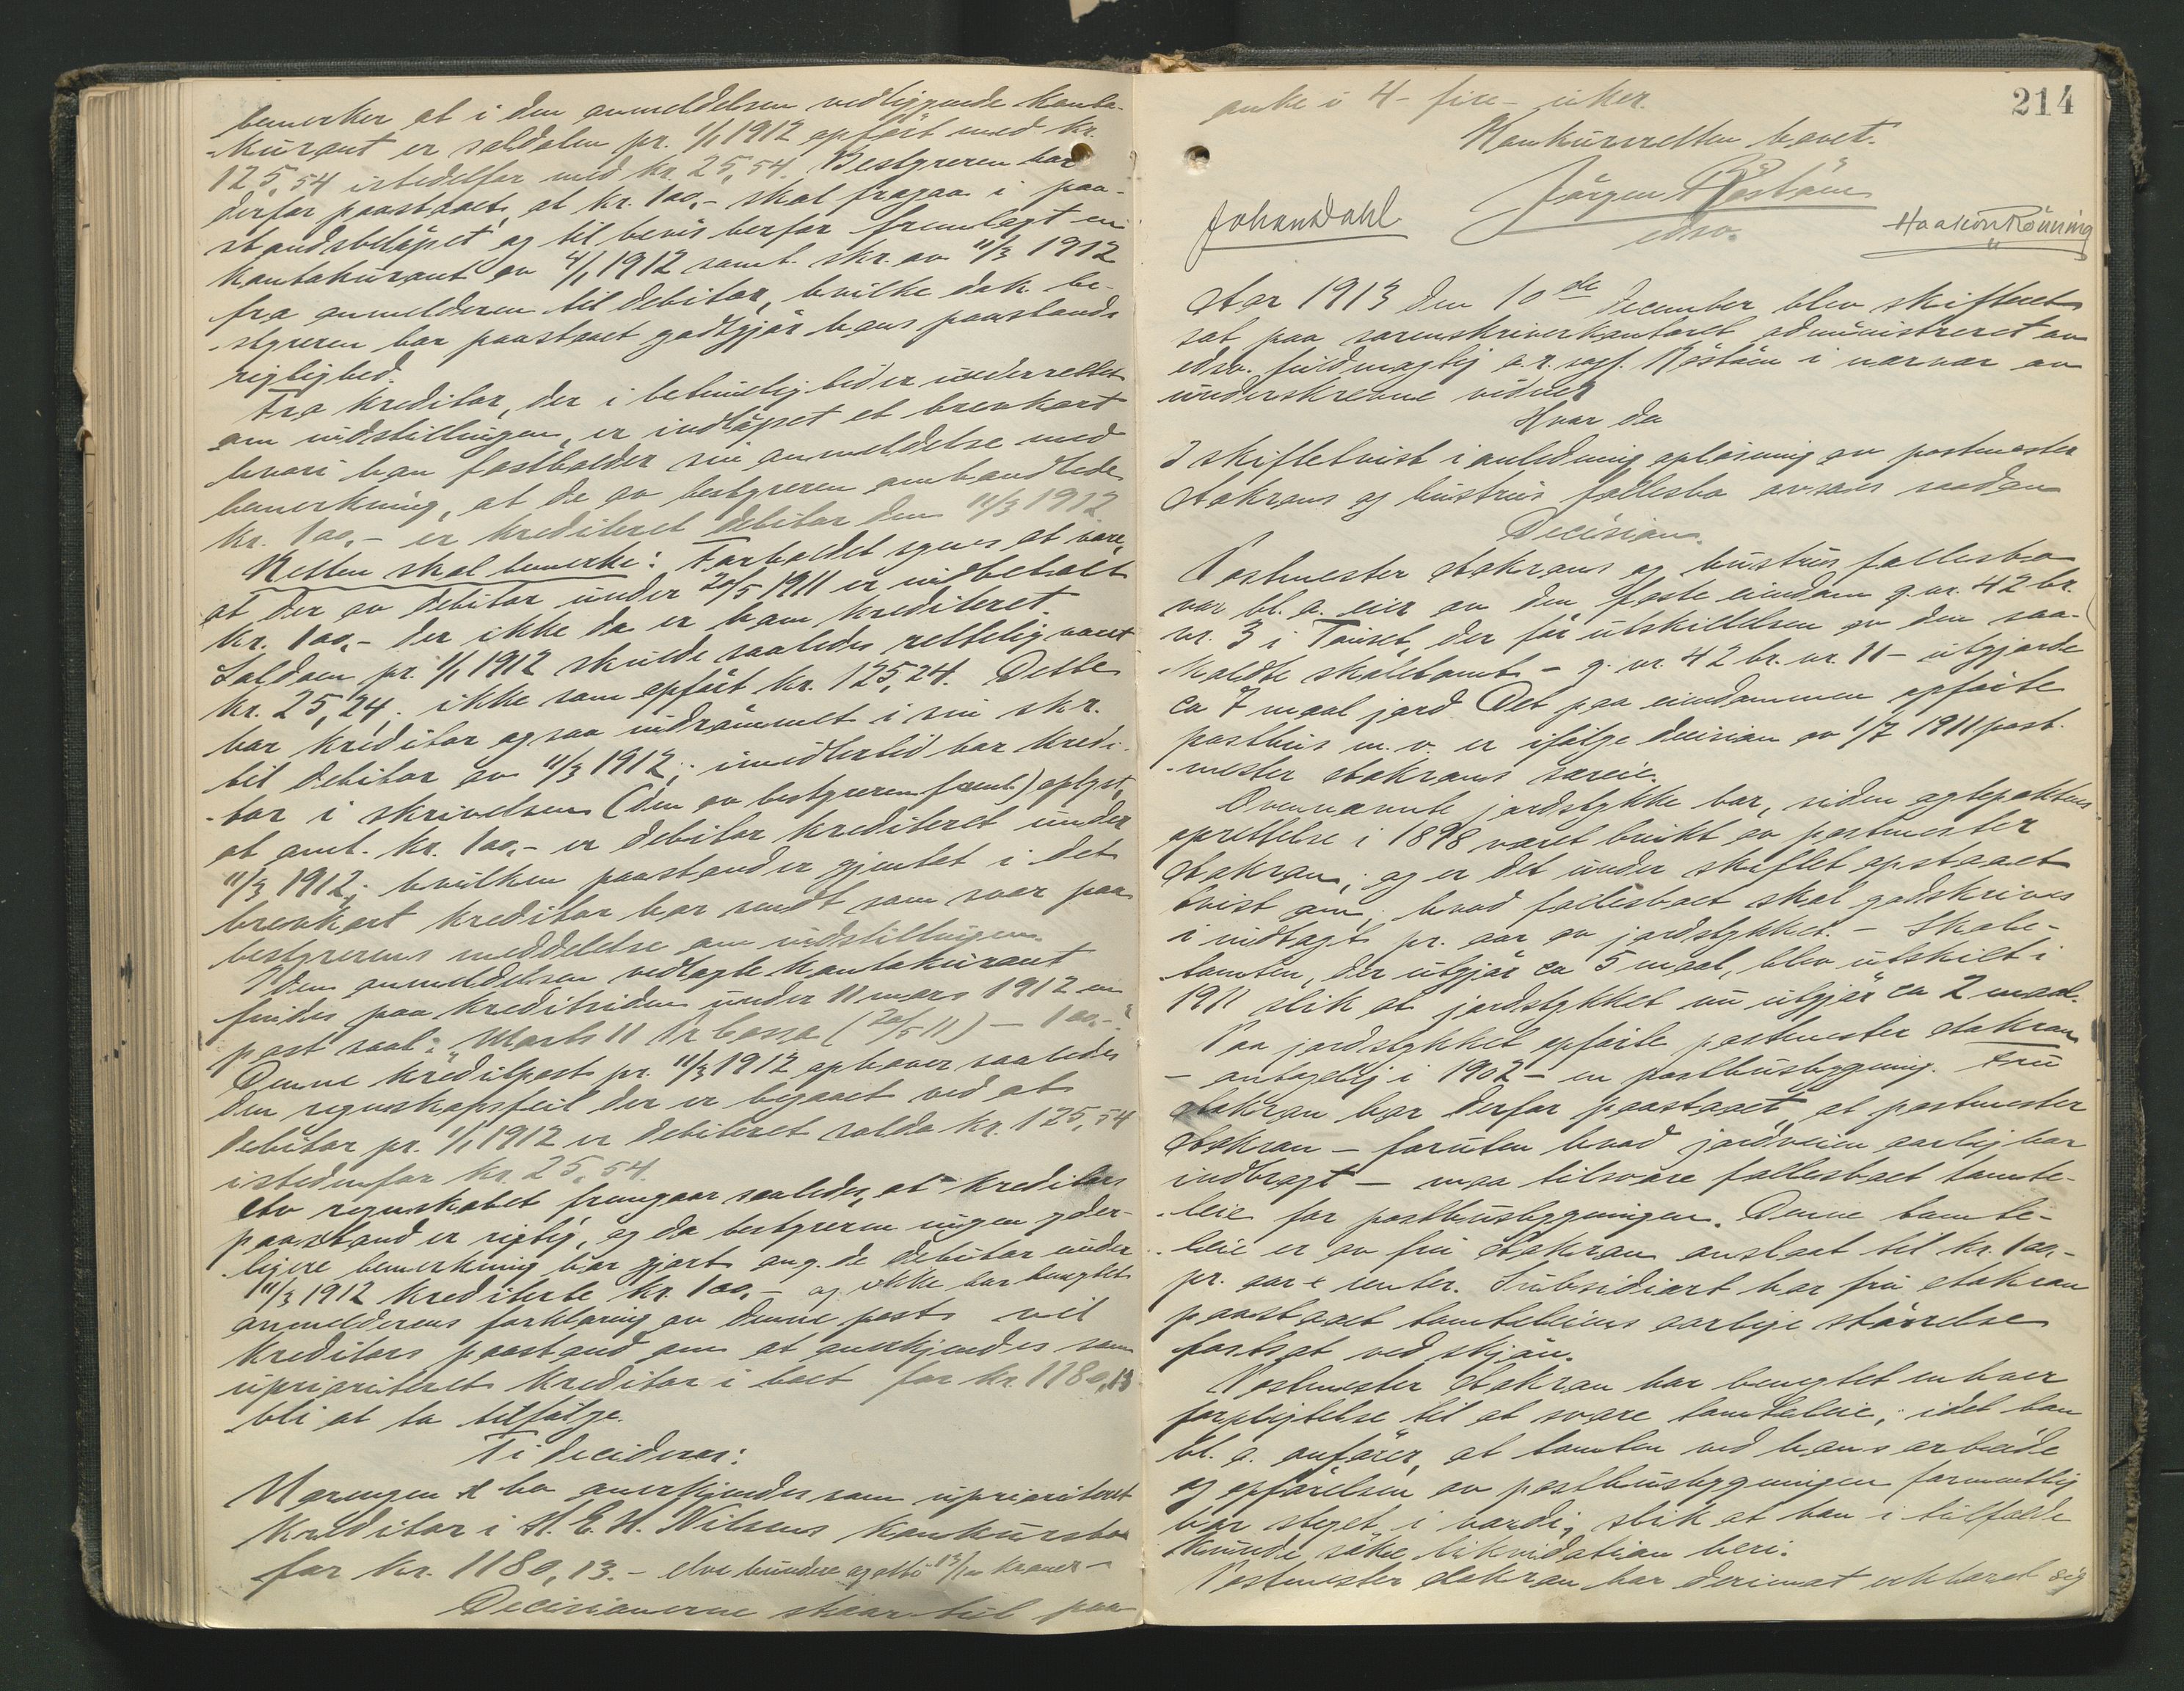 bemerker at i den anmeldelsen vedliggende konto-
-kurant er saldoen pr. 1/1 1912 opført med kr.
125,54 istedetfor med kr. 25,54. Bestyreren har
derfor paastaaet, at kr. 100,- skal fragaa i paa-
standsbeløpet og til bevis herfor fremlagt en
kontokurant av 4/1 1912 samt skr. av 11/3 1912
fra anmelderen til debitor, hvilke dok. be-
styreren har paastaaet godtgjør hans paastands
rigtighed.
Fra kreditor, der i betimelig tid er underrettet
om indstillingen, er indløpet et brevkort
hvori han fastholder sin anmeldelse med
bemerkning, at de av bestyreren omhandlede
kr. 100,- er krediteret debitor den 11/3 1912.
Retten skal bemerke: Forholdet synes at være,
at der av debitor under 20/5 1911 er indbetalt
kr. 100,- der ikke da er ham krediteret.
Saldoen pr. 1/1 1912 skulde saaledes rettelig været
kr. 25,24, ikke som opført kr. 125,24. Dette
har kreditor ogsaa indrømmet i sin skr.
til debitor av 11/3 1912; imidlertid har kredi-
-tor i skrivelsen (den av bestyreren freml.) oplyst,
at omt. kr. 100,- er debitor krediteret under
11/3 1912; hvilken paastand er gjentat i det
brevkort kreditor har sendt som svar paa
bestyrerens meddelelse om indstillingen.
I den anmeldelsen vedlagte kontokurant
findes paa kreditsiden under 11 mars 1912 en
post saal: "Marts 11 Pr Cassa (20/5 11) — 100,-"
Denne kreditpost pr. 11/3 1912 ophæver saaledes
den regnskapsfeil der er begaaet ved at
debitor pr. 1/1 1912 er debiteret saldo kr. 125,54
istedenfor kr. 25,54.
Av regnskabet fremgaar saaledes, at kreditors
paastand er rigtig, og da bestyreren ingen yder-
ligere bemerkning har gjort ang. de debitor under
11/3 1912 krediterte kr. 100,- og ikke har benegtet
anmelderens forklaring av denne post vil
kreditors paastand om at anerkjendes som
uprioriteret kreditor i boet for kr. 1180,13
bli at ta tilfølge.
Ti decideres:
bo anerkjendes som uprioriteret
kreditor i H. E. H. Nilsens konkursbo
for kr. 1180,13. - elve hundre og otti 13/100 kroner -
Decisionerne staar til paa
214
anke i 4 - fire - uker.
Konkursretten hævet.
Jørgen Røstøen
edsv.
Johan Dahl
Haakon Rönning
Aar 1913 den 10de december blev skifteret
sat paa sorenskriverkontoret administreret av
edsv. fuldmægtig o.r. sagf. Røstøen i nærvær av
underskrevne vidner
Hvor da
I skiftetvist i anledning opløsning av postmester
Aakrans og hustrus fællesbo avsaaes saadan
Decision.
Postmester Aakrans og hustrus fællesbo
var bl. a. eier av den faste eiendom g. nr. 42 br.
nr. 3 i Tönset, der før utskillelsen av den saa-
kaldte skoletomt - g. nr. 42 br. nr. 11 - utgjorde
ca 7 maal jord. Det paa eiendommen opførte
posthus m. v. er ifølge decision av 1/7 1911 post-
-mester Aakrans særeie.
Ovennævnte jordstykke har, siden egtepaktens
oprettelse i 1898 været brukt av postmester
Aakran; og er det under skiftet opstaaet
tvist om, hvad fællesboet skal godskrives
i indtægt pr. aar av jordstykket. - Skole-
tomten, der utgjør ca 5 maal, blev utskilt i
1911 slik at jordstykket nu utgjør ca 2 maal.
Paa jordstykket opførte postmester Aakran
- antagelig i 1902 - en posthusbygning. Fru
Aakran har derfor paastaaet, at postmester
Aakran - foruten hvad jordveien aarlig har
indbragt - maa tilsvare fællesboet tomte-
-leie for posthusbygningen. Denne tomte-
-leie er av fru Aakran anslaat til kr. 100,-
pr. aar + renter. Subsidiært har fru Aakran
paastaaet tomteleiens aarlige størrelse
fastsat ved skjøn.
Postmester Aakran har benegtet enhver
forpligtelse til at svare tomteleie, idet han
bl. a. anfører, at tomten ved hans arbeide
og opførelsen av posthusbygningen formentlig
var steget i værdi, slik at han i tilfælde
kunde søke likvidation heri.
Postmester Aakran har derimot erklæret sig